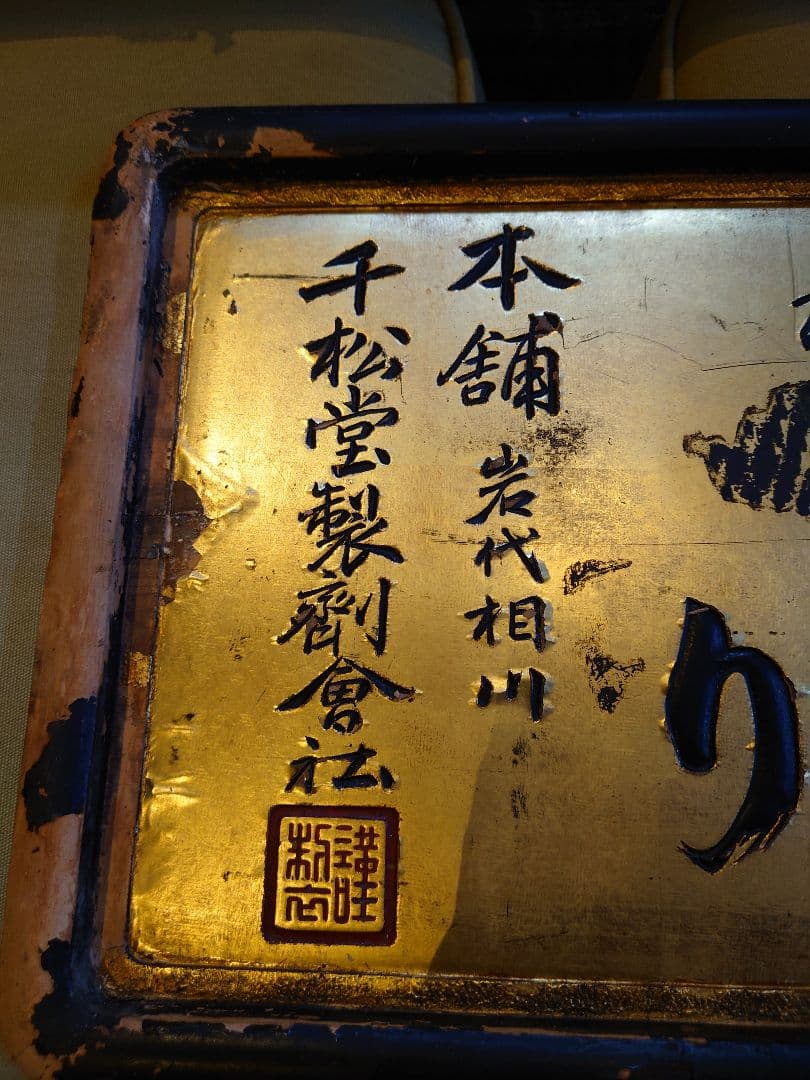 り
本舗 岩代相川
千松堂製劑會社
謹製